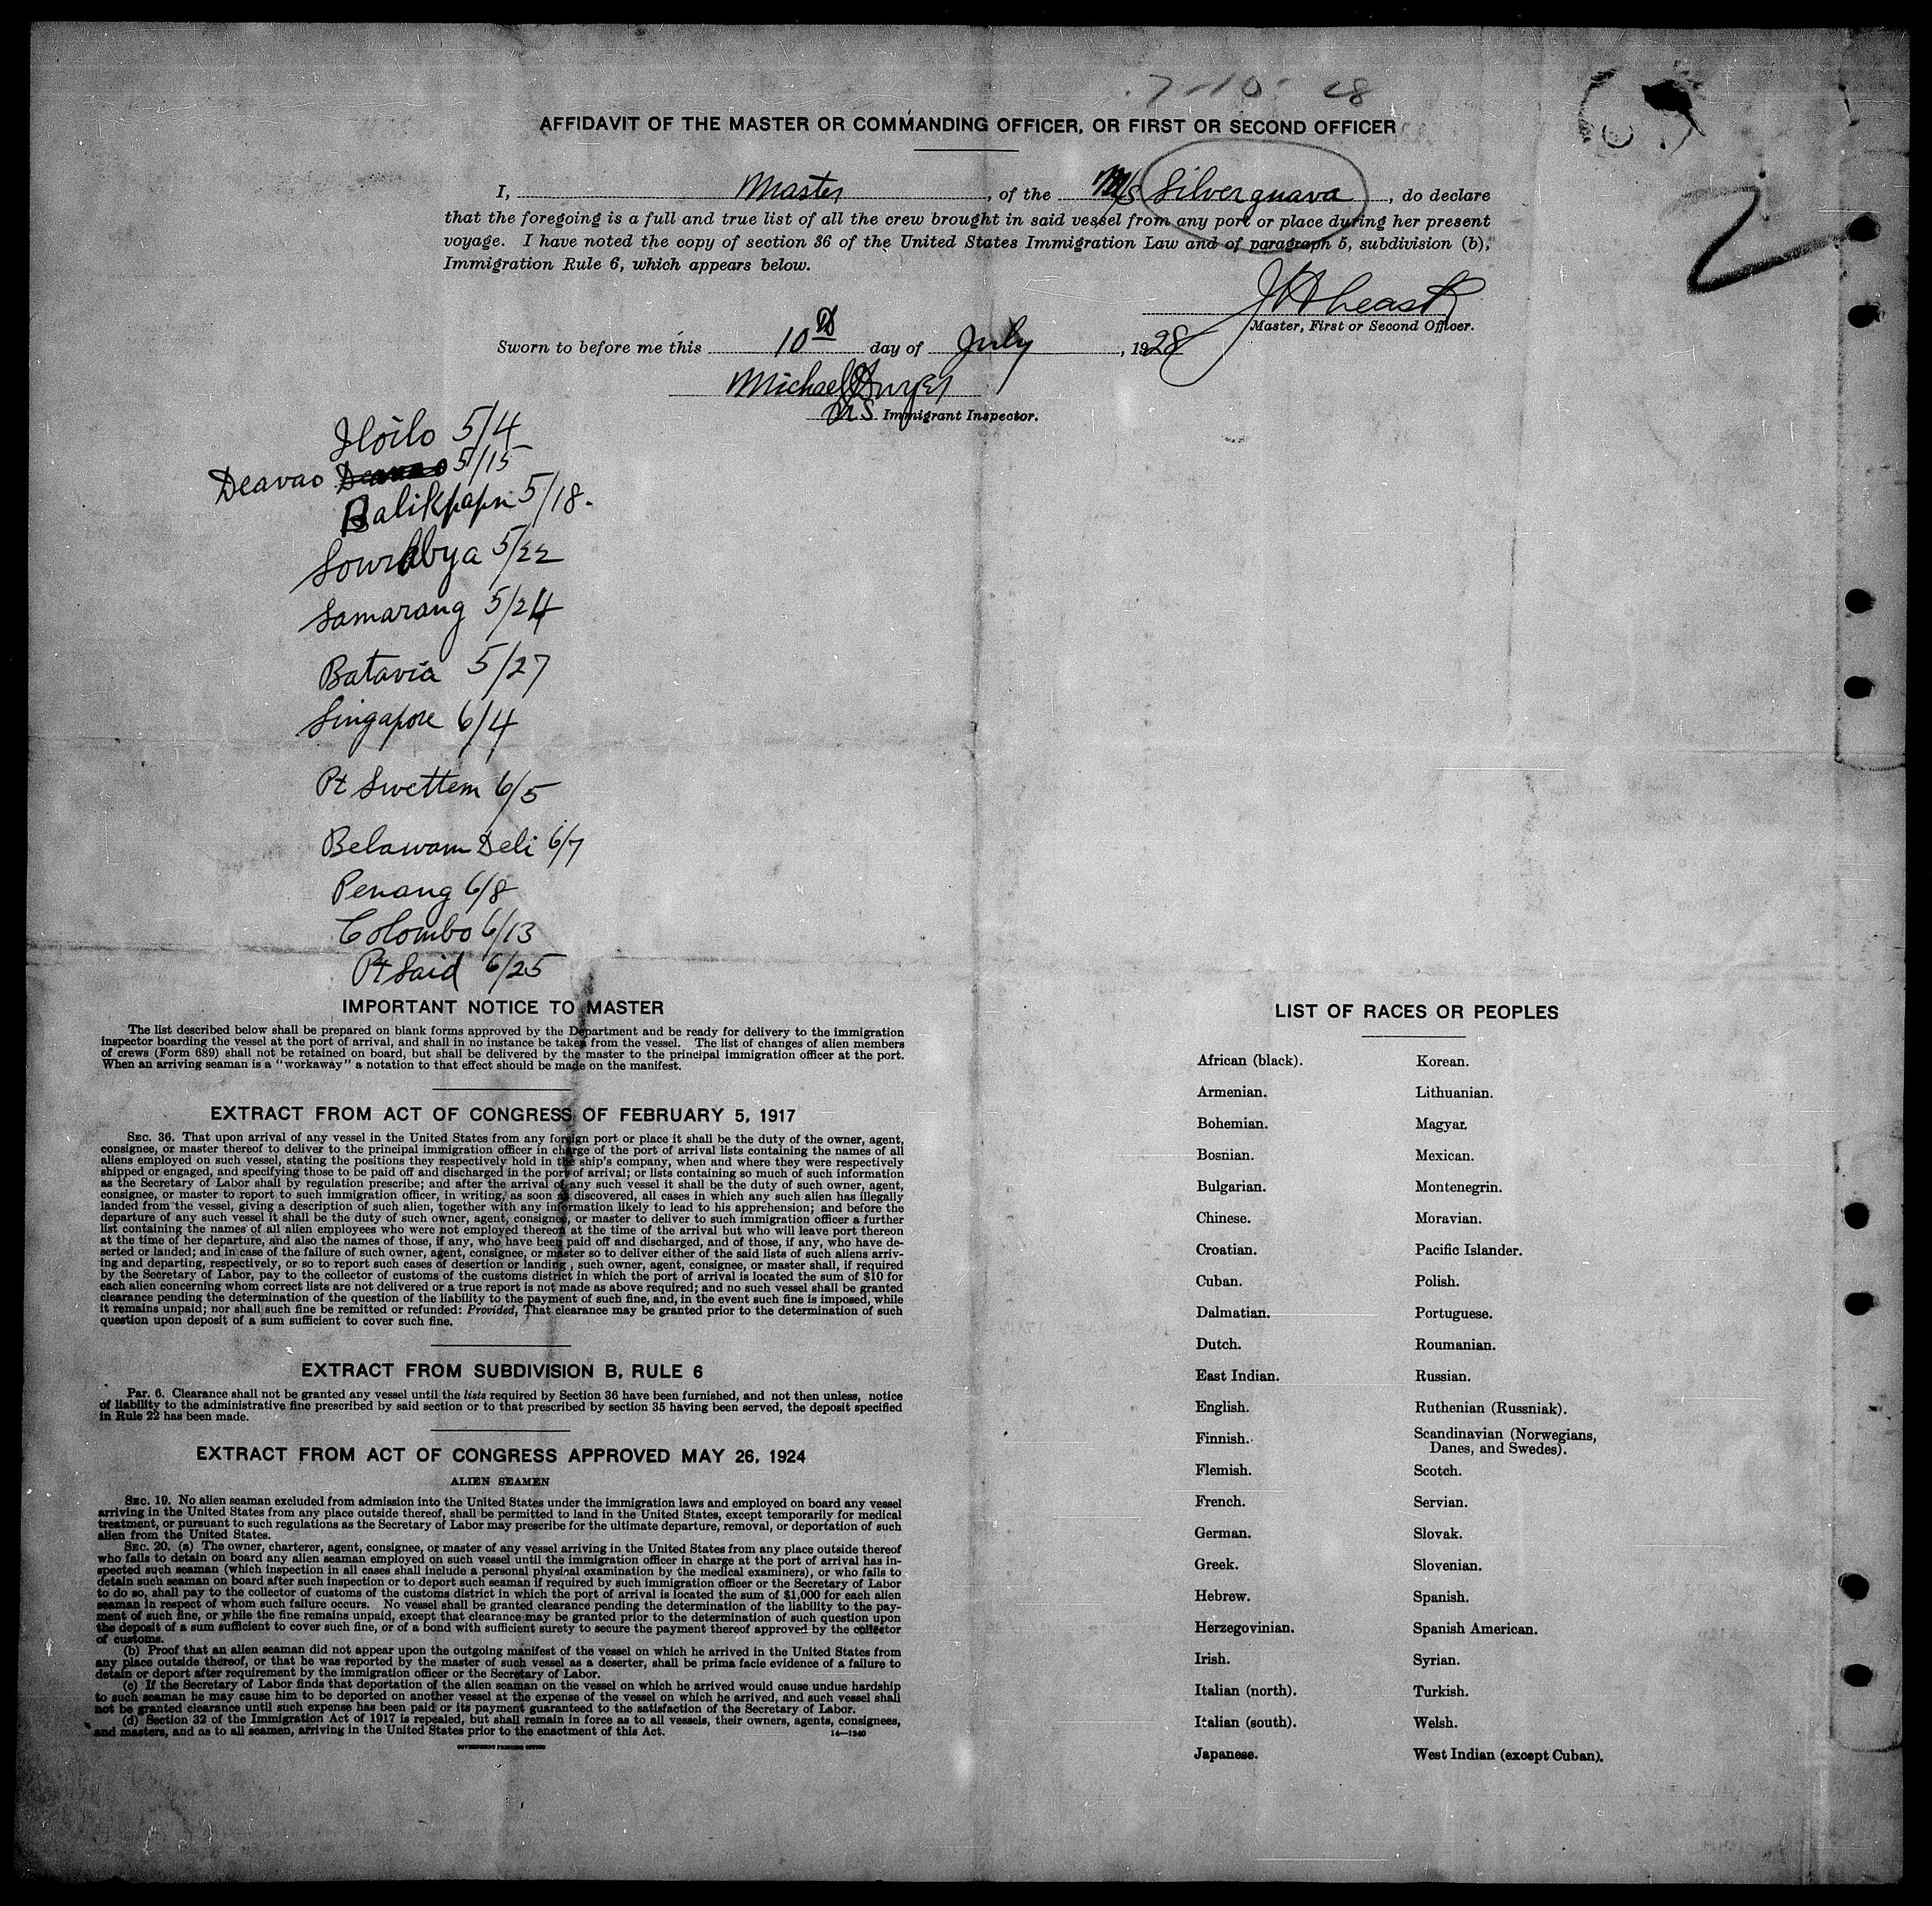 7-10-28
AFFIDAVIT OF THE MASTER OR COMMANDING OFFICER, OR FIRST OR SECOND OFFICER
I, Master, of the M/S Silverguava, do declare
that the foregoing is a full and true list of all the crew brought in said vessel from any port or place during her present
voyage. I have noted the copy of section 36 of the United States Immigration Law and of paragraph 5, subdivision (b),
Immigration Rule 6, which appears below.
2
Master, First or Second Officer.
Sworn to before me this 10th day of July, 1928
Michael Dwyer
US Immigrant Inspector.
Iloilo 5/4
Deavao 5/15
Balikpapn 5/18.
Sourabya 5/22
Samarang 5/24
Batavia 5/27
Singapore 6/4
Pt Swettem 6/5
Belawam Deli 6/7
Penang 6/8
Colombo 6/13
Pt Said 6/25
IMPORTANT NOTICE TO MASTER
The list described below shall be prepared on blank forms approved by the Department and be ready for delivery to the immigration
inspector boarding the vessel at the port of arrival, and shall in no instance be taken from the vessel. The list of changes of alien members
of crews (Form 689) shall not be retained on board, but shall be delivered by the master to the principal immigration officer at the port.
When an arriving seaman is a "workaway" a notation to that effect should be made on the manifest.
EXTRACT FROM ACT OF CONGRESS OF FEBRUARY 5, 1917
SEC. 36. That upon arrival of any vessel in the United States from any foreign port or place it shall be the duty of the owner, agent,
consignee, or master thereof to deliver to the principal immigration officer in charge of the port of arrival lists containing the names of all
aliens employed on such vessel, stating the positions they respectively hold in the ship's company, when and where they were respectively
shipped or engaged, and specifying those to be paid off and discharged in the port of arrival; or lists containing so much of such information
as the Secretary of Labor shall by regulation prescribe; and after the arrival of any such vessel it shall be the duty of such owner, agent,
consignee, or master to report to such immigration officer, in writing, as soon as discovered, all cases in which any such alien has illegally
landed from the vessel, giving a description of such alien, together with any information likely to lead to his apprehension; and before the
departure of any such vessel it shall be the duty of such owner, agent, consignee, or master to deliver to such immigration officer a further
list containing the names of all alien employees who were not employed thereon at the time of the arrival but who will leave port thereon
at the time of her departure, and also the names of those, if any, who have been paid off and discharged, and of those, if any, who have de-
serted or landed; and in case of the failure of such owner, agent, consignee, or master so to deliver either of the said lists of such aliens arriv-
ing and departing, respectively, or so to report such cases of desertion or landing, such owner, agent, consignee, or master shall, if required
by the Secretary of Labor, pay to the collector of customs of the customs district in which the port of arrival is located the sum of $10 for
each alien concerning whom correct lists are not delivered or a true report is not made as above required; and no such vessel shall be granted
clearance pending the determination of the question of the liability to the payment of such fine, and, in the event such fine is imposed, while
it remains unpaid; nor shall such fine be remitted or refunded: Provided, That clearance may be granted prior to the determination of such
question upon deposit of a sum sufficient to cover such fine.
EXTRACT FROM SUBDIVISION B, RULE 6
Par. 6. Clearance shall not be granted any vessel until the lists required by Section 36 have been furnished, and not then unless, notice
of liability to the administrative fine prescribed by said section or to that prescribed by section 35 having been served, the deposit specified
in Rule 22 has been made.
EXTRACT FROM ACT OF CONGRESS APPROVED MAY 26, 1924
ALIEN SEAMEN
SEC. 19. No alien seaman excluded from admission into the United States under the immigration laws and employed on board any vessel
arriving in the United States from any place outside thereof, shall be permitted to land in the United States, except temporarily for medical
treatment, or pursuant to such regulations as the Secretary of Labor may prescribe for the ultimate departure, removal, or deportation of such
alien from the United States.
SEC. 20. (a) The owner, charterer, agent, consignee, or master of any vessel arriving in the United States from any place outside thereof
who fails to detain on board any alien seaman employed on such vessel until the immigration officer in charge at the port of arrival has in-
spected such seaman (which inspection in all cases shall include a personal physical examination by the medical examiners), or who fails to
detain such seaman on board after such inspection or to deport such seaman if required by such immigration officer or the Secretary of Labor
to do so, shall pay to the collector of customs of the customs district in which the port of arrival is located the sum of $1,000 for each alien
seaman in respect of whom such failure occurs. No vessel shall be granted clearance pending the determination of the liability to the pay-
ment of such fine, or while the fine remains unpaid, except that clearance may be granted prior to the determination of such question upon
the deposit of a sum sufficient to cover such fine, or of a bond with sufficient surety to secure the payment thereof approved by the collector
of customs.
(b) Proof that an alien seaman did not appear upon the outgoing manifest of the vessel on which he arrived in the United States from
any place outside thereof, or that he was reported by the master of such vessel as a deserter, shall be prima facie evidence of a failure to
detain or deport after requirement by the immigration officer or the Secretary of Labor.
(c) If the Secretary of Labor finds that deportation of the alien seaman on the vessel on which he arrived would cause undue hardship
to such seaman he may cause him to be deported on another vessel at the expense of the vessel on which he arrived, and such vessel shall
not be granted clearance until such expense has been paid or its payment guaranteed to the satisfaction of the Secretary of Labor.
(d) Section 32 of the Immigration Act of 1917 is repealed, but shall remain in force as to all vessels, their owners, agents, consignees,
and masters, and as to all seamen, arriving in the United States prior to the enactment of this Act.
14—1240
GOVERNMENT PRINTING OFFICE
LIST OF RACES OR PEOPLES
African (black). Korean.
Armenian. Lithuanian.
Bohemian. Magyar.
Bosnian. Mexican.
Bulgarian. Montenegrin.
Chinese. Moravian.
Croatian. Pacific Islander.
Cuban. Polish.
Dalmatian. Portuguese.
Dutch. Roumanian.
East Indian. Russian.
English. Ruthenian (Russniak).
Finnish. Scandinavian (Norwegians,
Danes, and Swedes).
Flemish. Scotch.
French. Servian.
German. Slovak.
Greek. Slovenian.
Hebrew. Spanish.
Herzegovinian. Spanish American.
Irish. Syrian.
Italian (north). Turkish.
Italian (south). Welsh.
Japanese. West Indian (except Cuban).